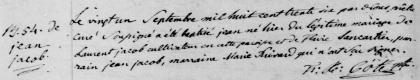 Le vingt un Septembre mil huit cent trente six par nous prêtre
B. 54. de curé soussigné a été baptisé jean né hier du légitime mariage de
jean laurent jacob cultivateur en cette paroisse et de Marie
jacob. parrain jean jacob, marraine Marie qui n'ont su signer.